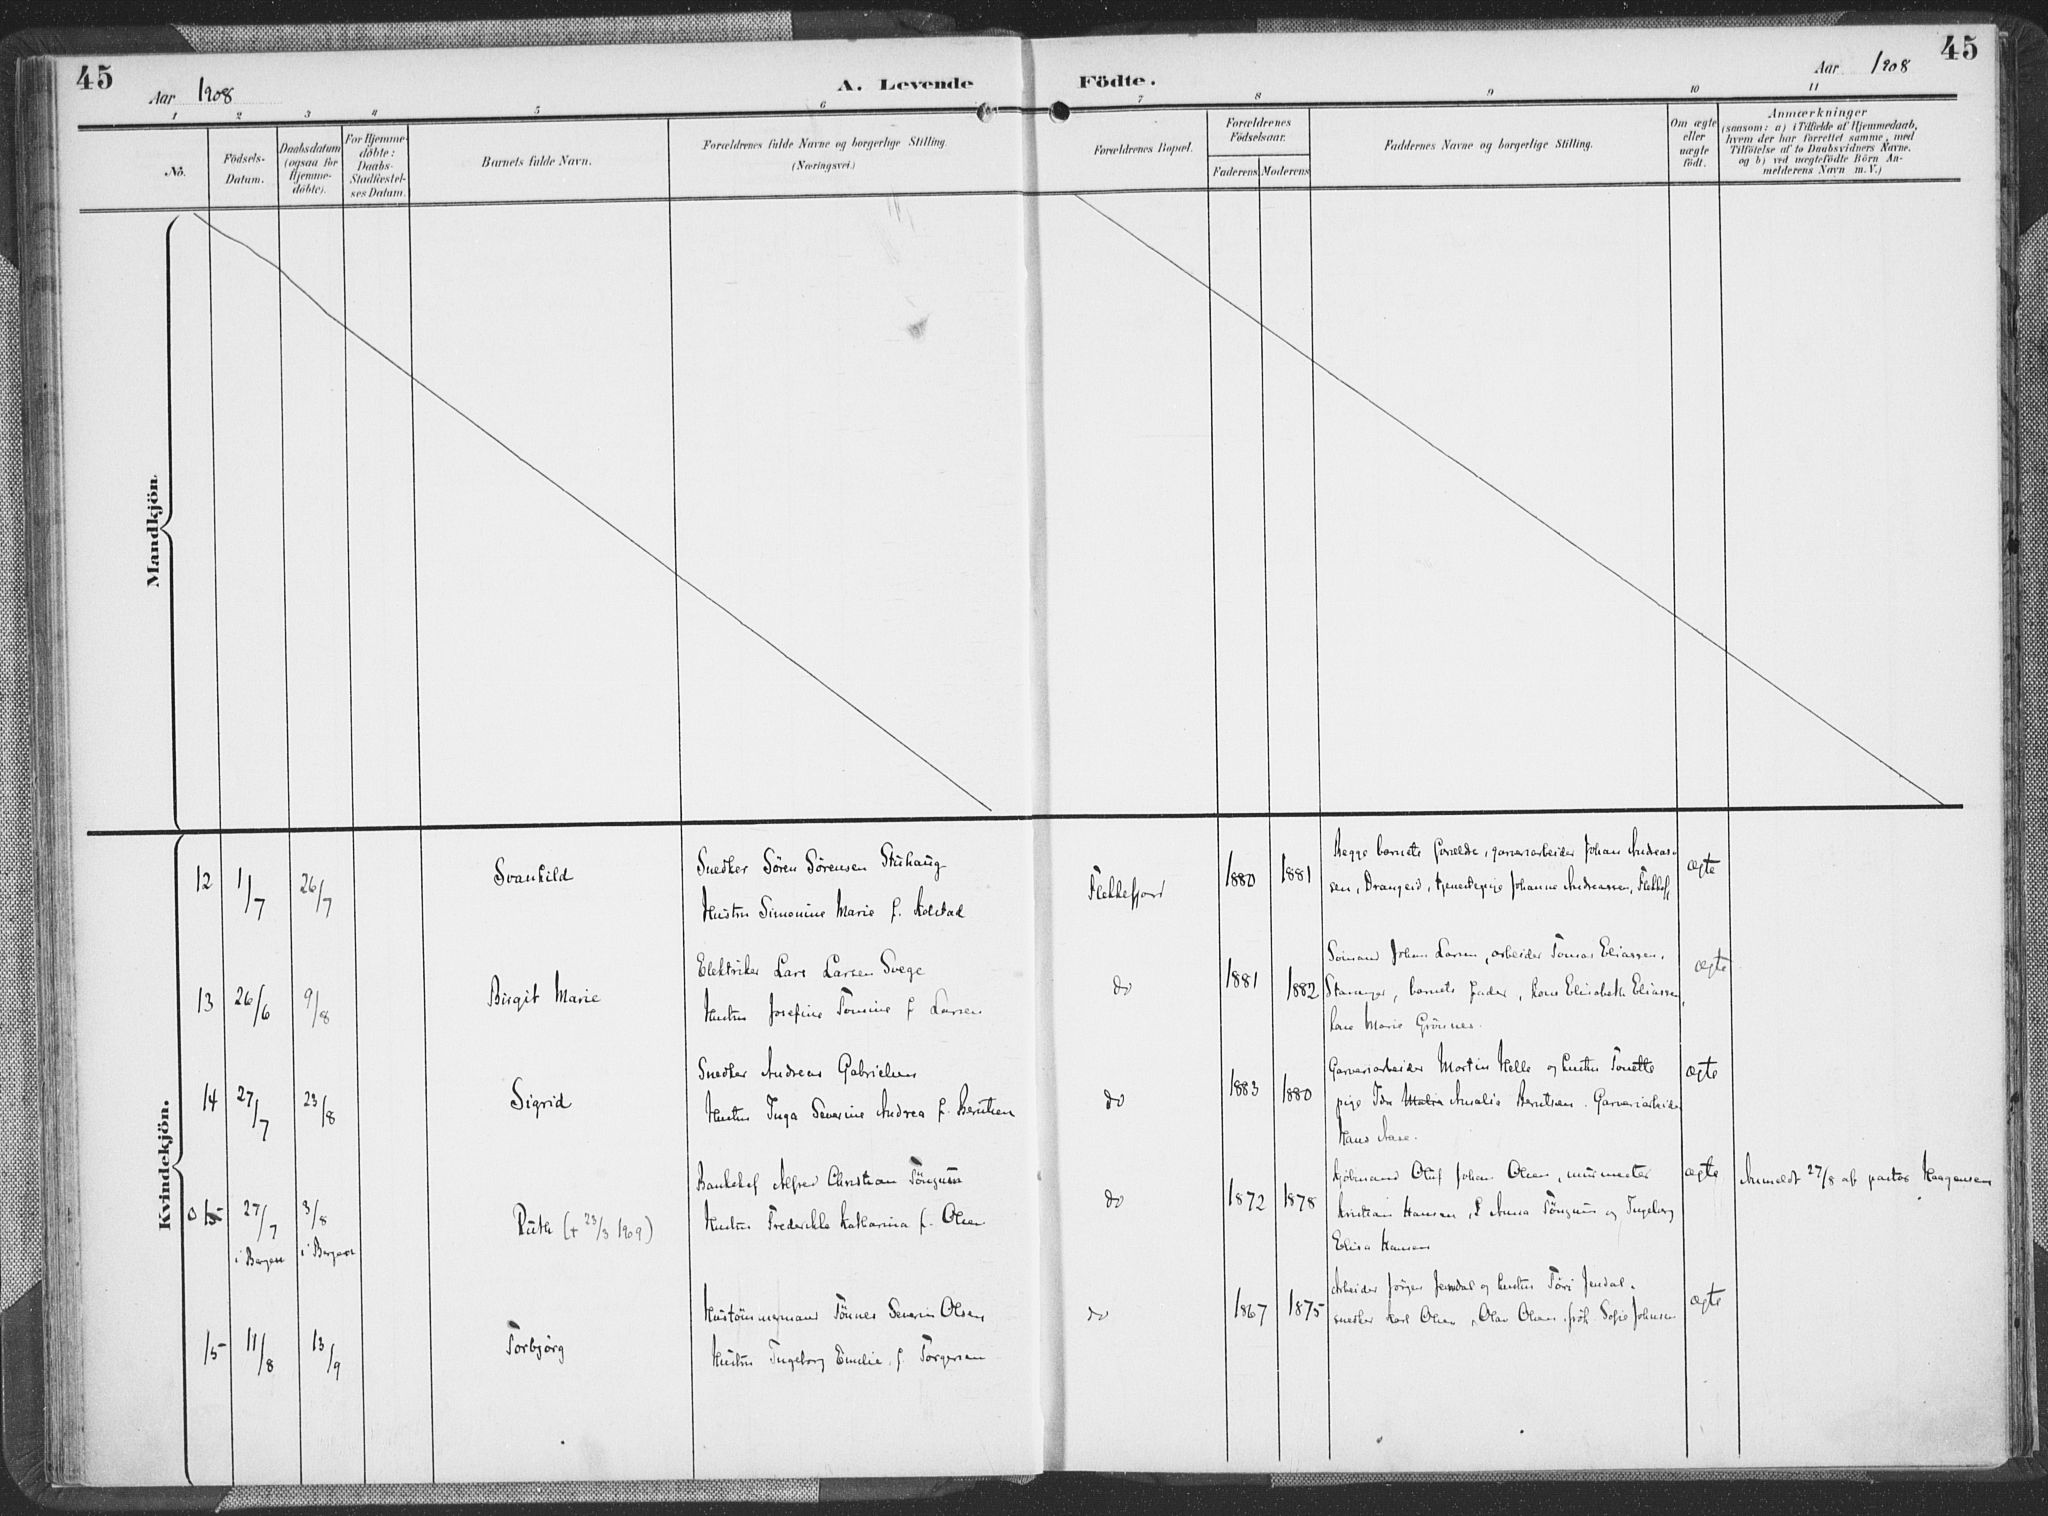 45
Aar 1908
A. Levende Födte.
Aar 1908
45
1 2 3 4 5 6 7 8 9 10 11
No.
Födsels-
Datum.
Daabsdatum
(ogsaa for
Hjemme-
döbte).
For Hjemme-
döbte:
Daabs-
Stadfæstel-
ses Datum.
Barnets fulde Navn.
Forældrenes fulde Navne og borgerlige Stilling.
(Næringsvei.)
Forældrenes Bopæl.
Forældrenes
Födselsaar.
Faderens Moderens
Faddernes Navne og borgerlige Stilling.
Om ægte
eller
uægte
født.
Anmærkninger
(saasom: a) i Tilfælde af Hjemmedaab,
hvem der har forrettet samme, med
Tilföielse af to Daabsvidners Navne.
og b) ved uægtefödte Börn An-
melderens Navn m. V.)
Mandkjön
Kvindekjön.
12 1/7 26/7 Svanhild
Snedker Sören Sörensen Stuhaug
Hustru Simonine Marie f. Kolstad
Flekkefjord 1880 1881
Begge barnets forældre, garveriarbeider Johan Andreas-
sen, Drangeid, tjenestepige Johanne Andreassen, Flekkefj
ægte
13 26/6 9/8 Birgit Marie
Elektriker Lars Larsen Svege
Hustru Josefine Tomine f Larsen
do 1881 1882
Sömand Johan Larsen, arbeider Tomas Eliassen,
Stavanger, barnets fader, kone Elisabeth Eliassen,
kone Marie Grönnes.
ægte
14 27/7 23/8 Sigrid
Snedker Andreas Gabrielsen
Hustru Inga Severine Andrea f. Berntsen
do 1883 1880
Garveriarbeider Martin Helle og hustru Tonette
pige Ida Amalie Berntsen. Garveriarbeider
Hans Aase.
ægte
0 15 27/7 i Bergen 3/8 i Bergen Ruth (+ 23/3 1909)
Bankchef Alfred Christian Tönguss
Hustru Frederikke Katharina f. Olsen
do 1872 1878
Kjöbmand Oluf Johan Olsen, murmester
Kristian Hansen, Anna Tönguss og Ingeborg
Elisa Hansen
ægte
Anmeldt 27/8 af pastor Haagensen
15 11/8 13/9 Torbjörg
Hustömmermand Tönnes Severin Olsen
Hustru Ingeborg Emelie f Torgersen
do 1867 1875
Arbeider Jörgen Jendal og hustru Tori Jendal.
snedker Karl Olsen, Olav Olsen, frök. Sofie Johnsen
ægte